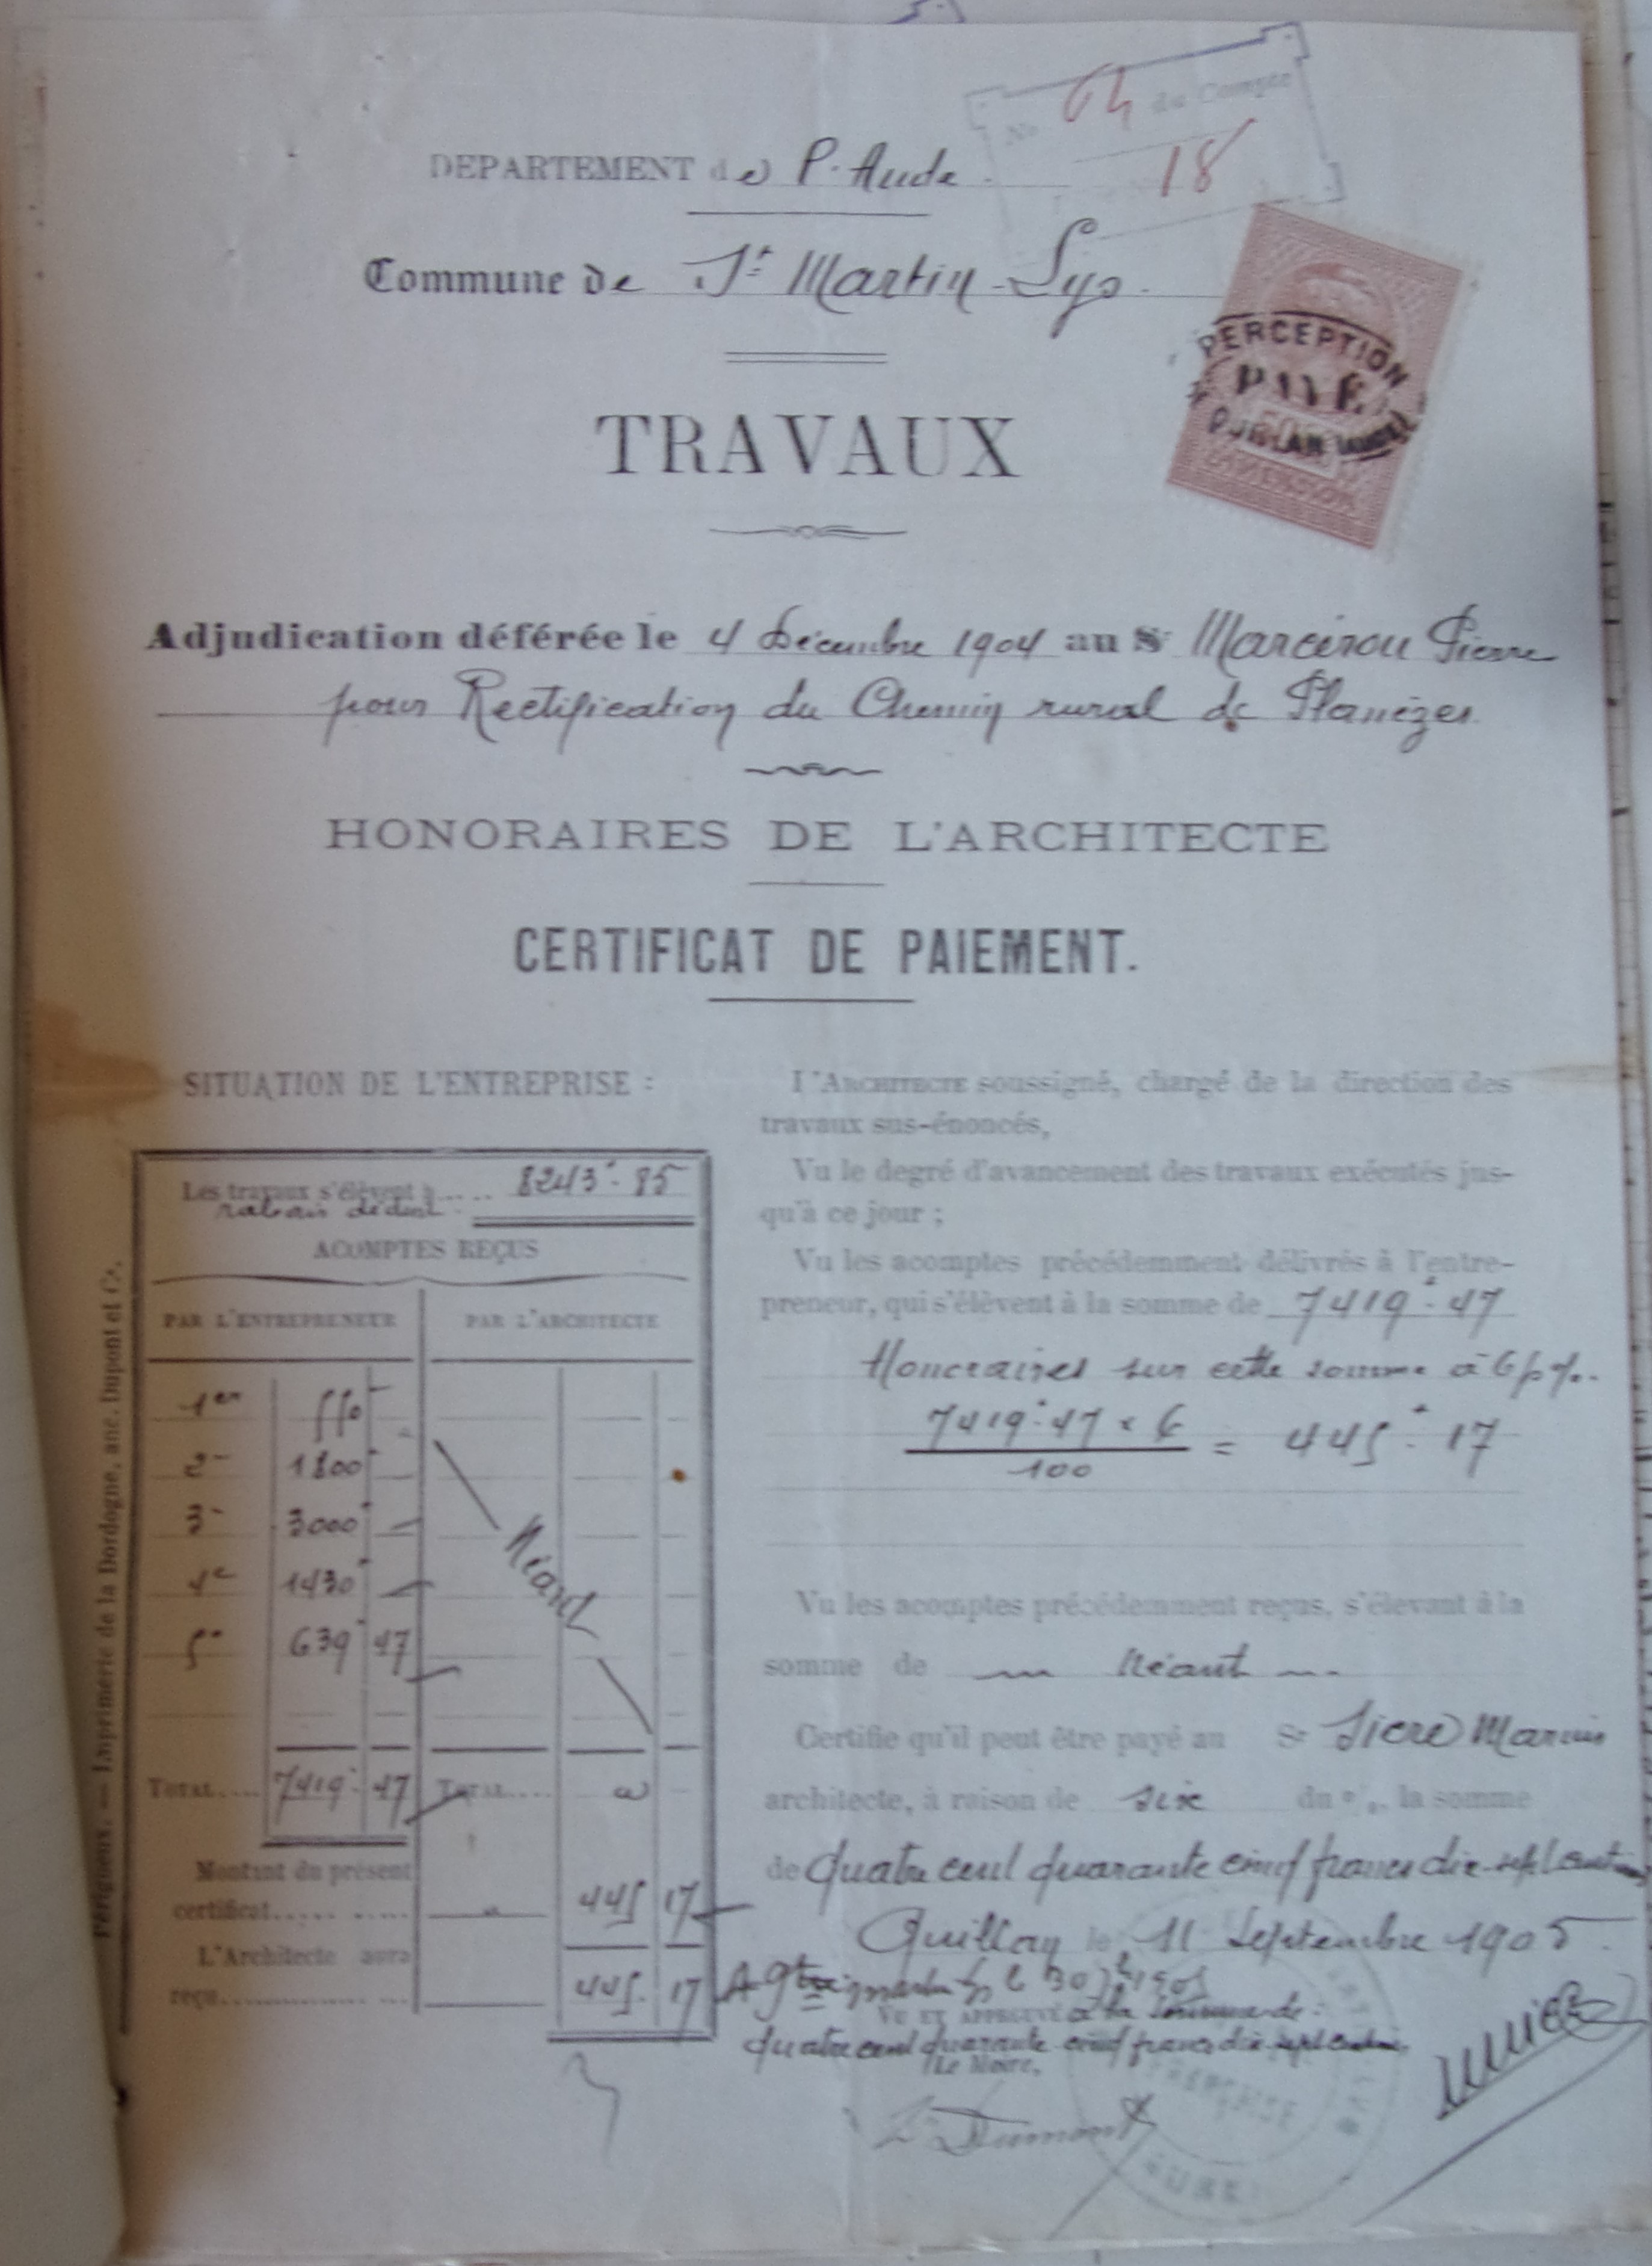 No 64 du Compte
18
DEPARTEMENT de l'Aude
Commune de St Martin-Lys
PERCEPTION
PAYÉ
QUILLAN (AUDE)
DIMENSION
TRAVAUX
Adjudication déférée le 4 Décembre 1904 au Sr Marcerou Pierre
pour Rectification du Chemin rural de Planèzes
HONORAIRES DE L'ARCHITECTE
CERTIFICAT DE PAIEMENT.
SITUATION DE L'ENTREPRISE :
Les travaux s'élèvent à..... 8243f. 85
rabais déduit
ACOMPTES REÇUS
PAR L'ENTREPRENEUR PAR L'ARCHITECTE
1er 550
2e 1800
3e 3000
4e 1430
5e 639 47
Néant
TOTAL.... 7419 47 TOTAL....
Montant du présent
certificat..... ..... 445 17
L'Architecte aura
reçu.................. 445. 17
Périgueux. — Imprimerie de la Dordogne, anc. Dupont et Ce.
L'ARCHITECTE soussigné, chargé de la direction des
travaux sus-énoncés,
Vu le degré d'avancement des travaux exécutés jus-
qu'à ce jour ;
Vu les acomptes précédemment délivrés à l'entre-
preneur, qui s'élèvent à la somme de 7419f. 47
Honoraires sur cette somme à 6 p %.
7419f. 47 x 6
100
= 445f. 17
Vu les acomptes précédemment reçus, s'élevant à la
somme de Néant
Certifie qu'il peut être payé au Sr Siere
architecte, à raison de six du %, la somme
de quatre cent quarante cinq francs dix-sept centimes
Quillan le 11 Septembre 1905
VU ET APPROUVÉ à la somme de :
quatre cent quarante cinq francs dix-sept centimes
Le Maire,
FRANÇAISE
AUDE